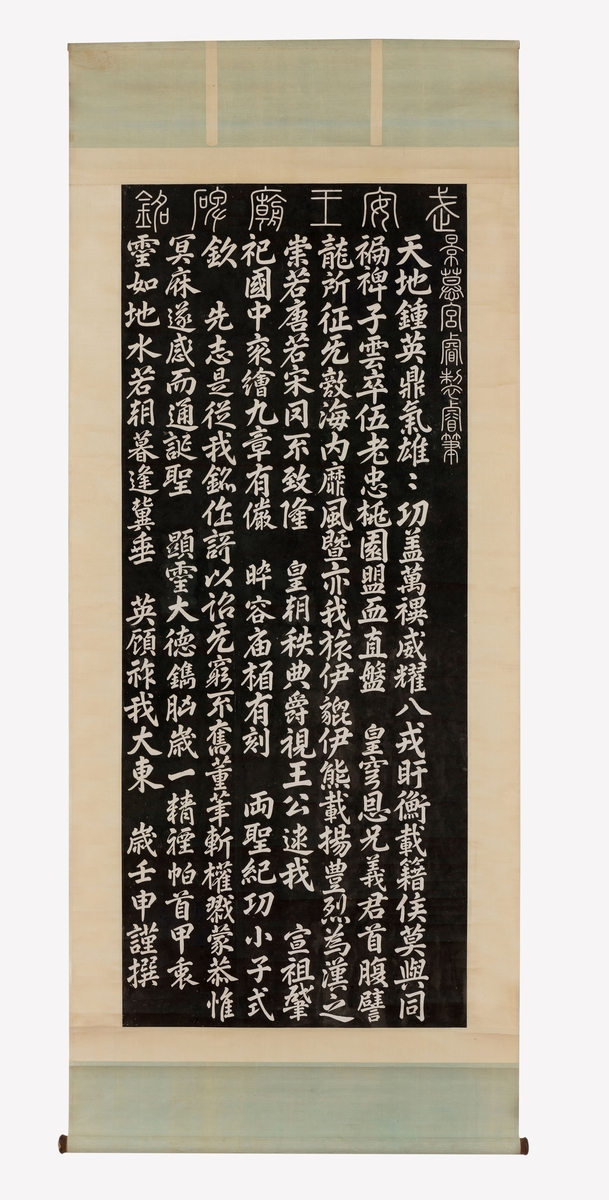 武安王廟碑銘
景慕宮睿製睿筆
天地鍾英鼎氣雄〻功盖萬禩威耀八戎盱衡載籍侯莫與同
褊裨子雲卒伍老忠桃園盟血直盤 皇穹恩兄義君首腹譬
龍所征无敵海内靡風曁亦我旅伊貔伊熊載揚豊烈為漢之
崇若唐若宋罔不致隆 皇朝秩典爵視王公逮我 宣祖肇
祀國中衮繪九章有儼 睟容庙楣有刻 兩聖紀功小子式
欽 先志是從我銘作詩以詔无窮不奮董筆斬權戮蒙恭惟
冥庥遂感而通誕聖 顯霊大德鐫胸歲一精禋帕首甲衷
霊如地水若朝暮逢冀垂 英顧祚我大東 歲壬申謹撰